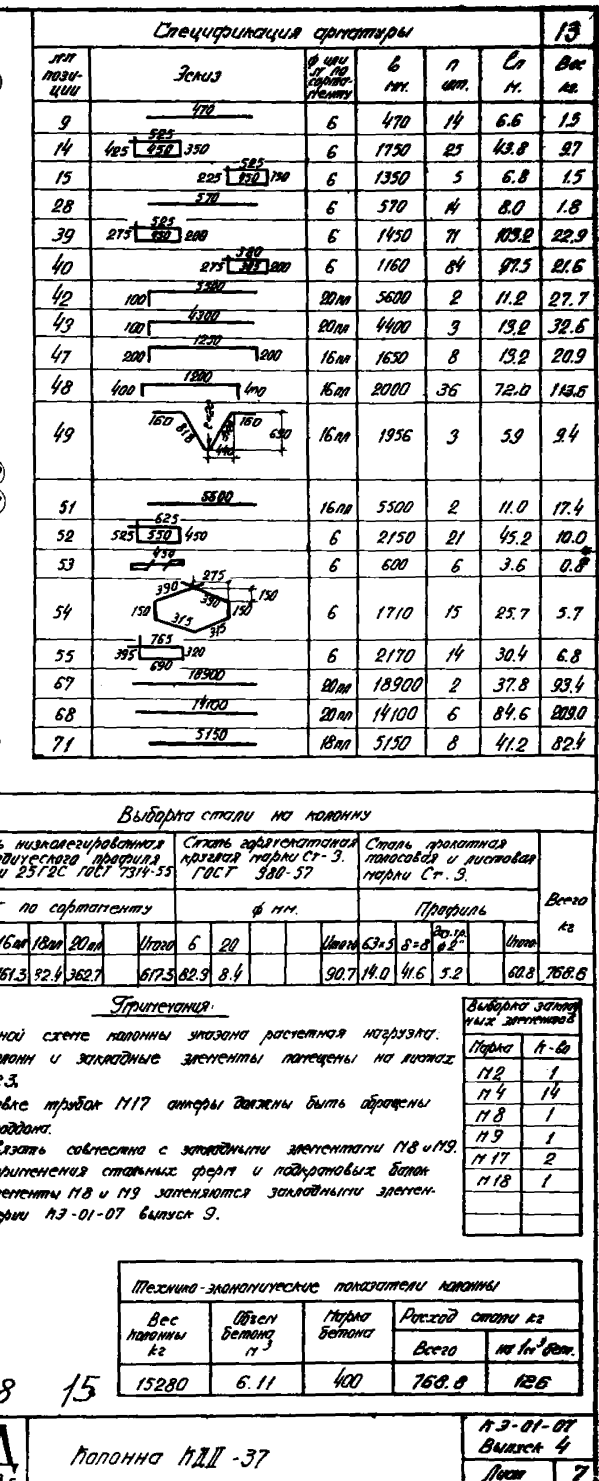 Спецификация арматуры 13
№№ пози-ции Эскиз ф или № по сорта-менту ℓ мм. n шт. ℓп м. Вес кг.
9 470 6 470 14 6.6 1.5
14 525 425 450 350 6 1750 25 43.8 9.7
15 525 225 450 150 6 1350 5 6.8 1.5
28 570 6 570 14 8.0 1.8
39 525 275 450 200 6 1450 71 103.2 22.9
40 380 275 305 200 6 1160 84 97.5 21.6
42 100 5500 20пл 5600 2 11.2 27.7
43 100 4300 20пл 4400 3 13.2 32.6
47 200 1250 200 16пл 1650 8 13.2 20.9
48 400 1200 400 16пл 2000 36 72.0 113.6
49 160 818 160 690 440 16пл 1956 3 5.9 9.4
51 5500 16пл 5500 2 11.0 17.4
52 625 525 550 450 6 2150 21 45.2 10.0
53 450 6 600 6 3.6 0.8
54 390 275 390 150 150 150 315 315 6 1710 15 25.7 5.7
55 765 395 320 690 6 2170 14 30.4 6.8
67 18900 20пл 18900 2 37.8 93.4
68 14100 20пл 14100 6 84.6 209.0
71 5150 18пл 5150 8 41.2 82.4
Выборка стали на колонну
ь низколегированная
одического профиля
и 25Г2С ГОСТ 7314-55
Сталь горячекатаная
круглая марки Ст-3.
ГОСТ 380-57
Сталь прокатная
полосовая и листовая
марки Ст.3.
Всего кг
т по сортаменту ф мм. Профиль
16пл 18пл 20пл Итого 6 20 Итого 63×5 δ=8 Газ.тр. ф2" Итого
161.3 92.4 362.7 617.3 82.3 8.4 90.7 14.0 41.6 5.2 60.8 768.8
Примечания:
ной схеме колонны указана расчетная нагрузка.
олонн и закладные элементы помещены на листах
3.
овке трубок М17 анкеры должны быть обращены
оддона.
вязать совместно с закладными элементами М8 и М9.
рименения стальных ферм и подкрановых балок
лементы М8 и М9 заменяются закладными элемен-
ерии КЭ-01-07 выпуск 9.
Выборка заклад-
ных элементов
Марка К-во
М2 1
М4 14
М8 1
М9 1
М17 2
М18 1
Технико-экономические показатели колонны
Вес колонны кг Объем бетона м³ Марка бетона Расход стали кг
Всего на 1м³ бет.
15280 6.11 400 768.8 126
8 15
Д Колонна КДII-37
КЭ-01-07
Выпуск 4
Лист 7